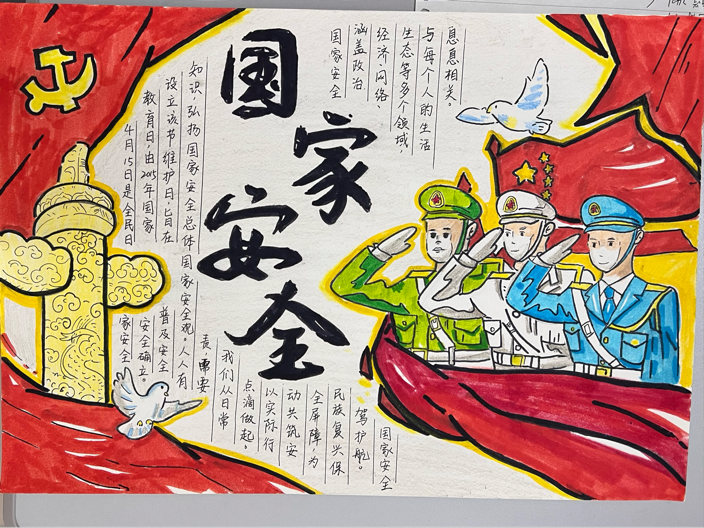 国家安全
国家安全
涵盖政治
经济、网络
生态等多个领域，
与每个人的生活
息息相关。
4月15日是全民日
家安全
教育日，由2015年国家
安全确立。
设立该节维护日，旨在
普及安全
知识，弘扬国家安全总体国家安全观。人人有
责，需要
我们从日常
点滴做起。
以实际行
动共筑安
全屏障，为
民族复兴保
驾护航。
国家安全